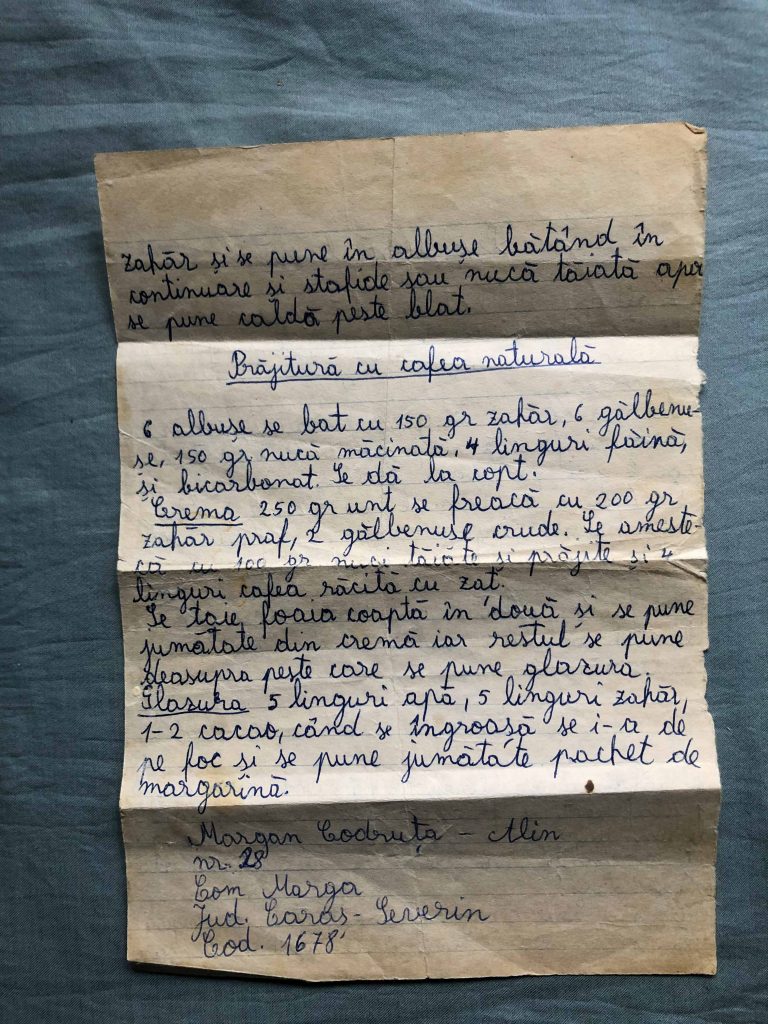 zahăr și se pune în albușe bătând în
continuare și stafide sau nucă tăiată apoi
se pune caldă peste blat.
Prăjitură cu cafea naturală
6 albușe se bat cu 150 gr zahăr, 6 gălbenu-
șe, 150 gr nucă măcinată, 4 linguri făină,
și bicarbonat. Se dă la copt.
Crema 250 gr unt se freacă cu 200 gr
zahăr praf, 2 gălbenușe crude. Se ameste-
că cu 100 gr nuci tăiate și prăjite și 4
linguri cafea răcită cu zaț.
Se taie foaia coaptă în două și se pune
jumătate din cremă iar restul se pune
deasupra peste care se pune glazura.
Glazura 5 linguri apă, 5 linguri zahăr,
1-2 cacao, când se îngroașă se i-a de
pe foc și se pune jumătate pachet de
margarină.
Margan Codruța - Alin
nr. 28
Com Marga
Jud. Caraș-Severin
Cod. 1678